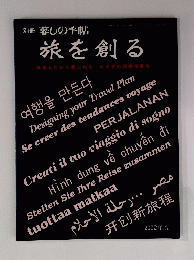 別冊 暮しの手帖
旅を創る
여행을 만든다
Designing your Travel Plan
Se creer des tendances voyage
PERJALANAN
Creati il tuo viaggio di sogno
Hình dung về chuyến đi
Stellen Sie Ihre Reise zusammen
luottaa matkaa
开创新旅程